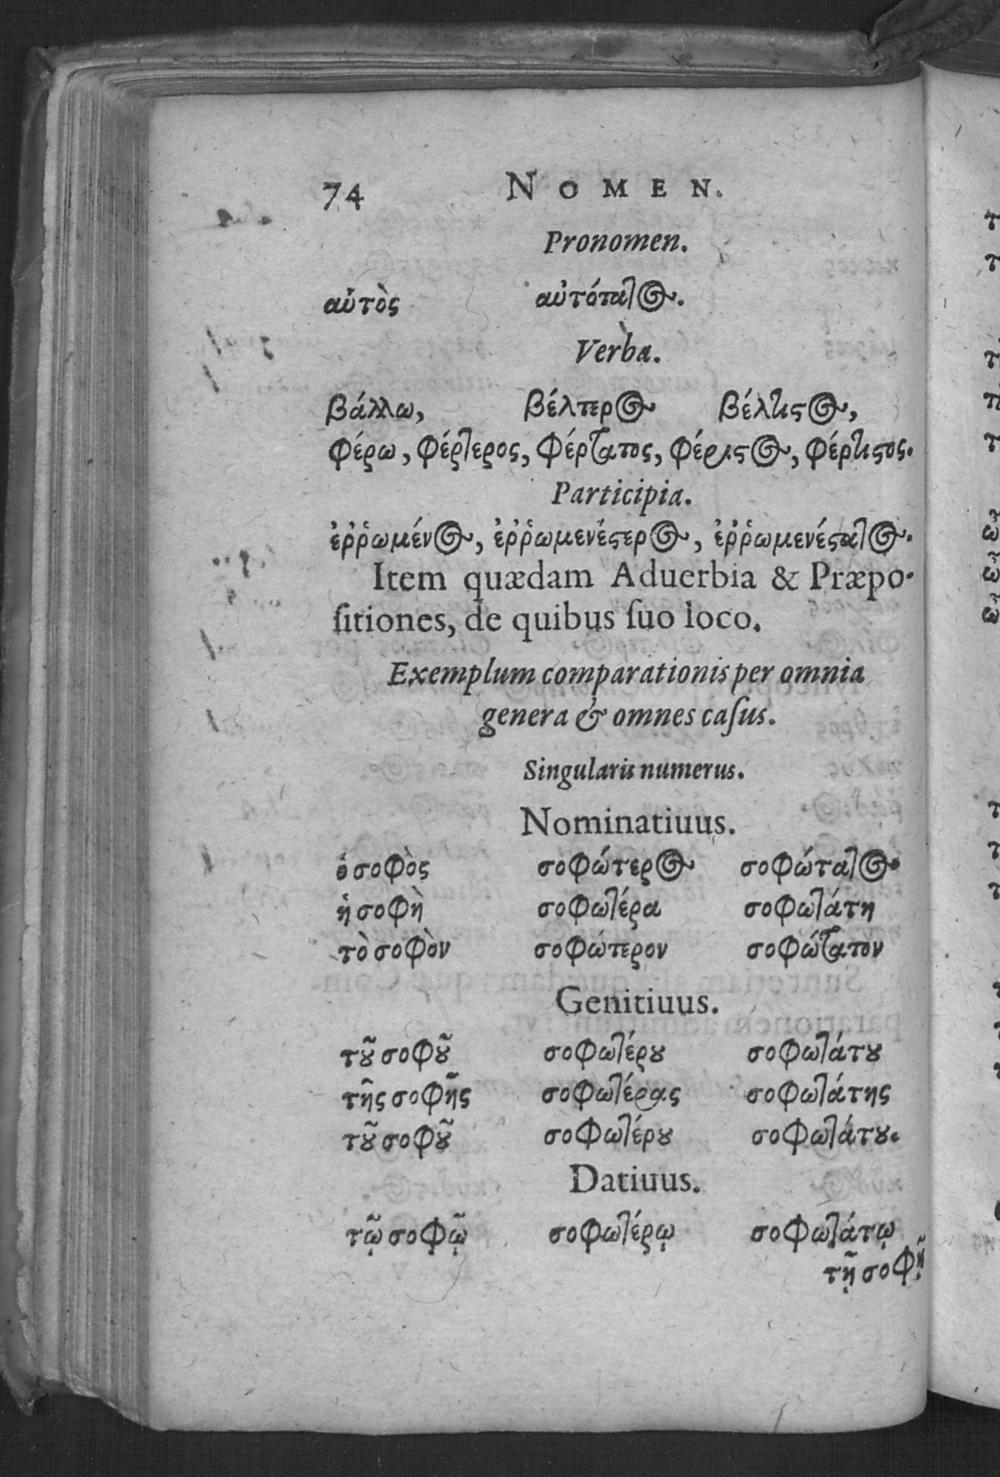 74 NOMEN.
Pronomen.
αὐτὸς αὐτότατος.
Verba.
βάλλω, βέλτερος βέλτιστος,
φέρω, φέρτερος, φέρτατος, φέριστος, φέρτιστος.
Participia.
ἐῤῥωμένος, ἐῤῥωμενέστερος, ἐῤῥωμενέστατος.
Item quædam Aduerbia & Præpo-
ſitiones, de quibus ſuo loco.
Exemplum comparationis per omnia
genera & omnes caſus.
Singularis numerus.
Nominatiuus.
ὁ σοφὸς σοφώτερος σοφώτατος
ἡ σοφὴ σοφωτέρα σοφωτάτη
τὸ σοφὸν σοφώτερον σοφώτατον
Genitiuus.
τοῦ σοφοῦ σοφωτέρου σοφωτάτου
τῆς σοφῆς σοφωτέρας σοφωτάτης
τοῦ σοφοῦ σοφωτέρου σοφωτάτου.
Datiuus.
τῷ σοφῷ σοφωτέρῳ σοφωτάτῳ
τῇ σοφῇ